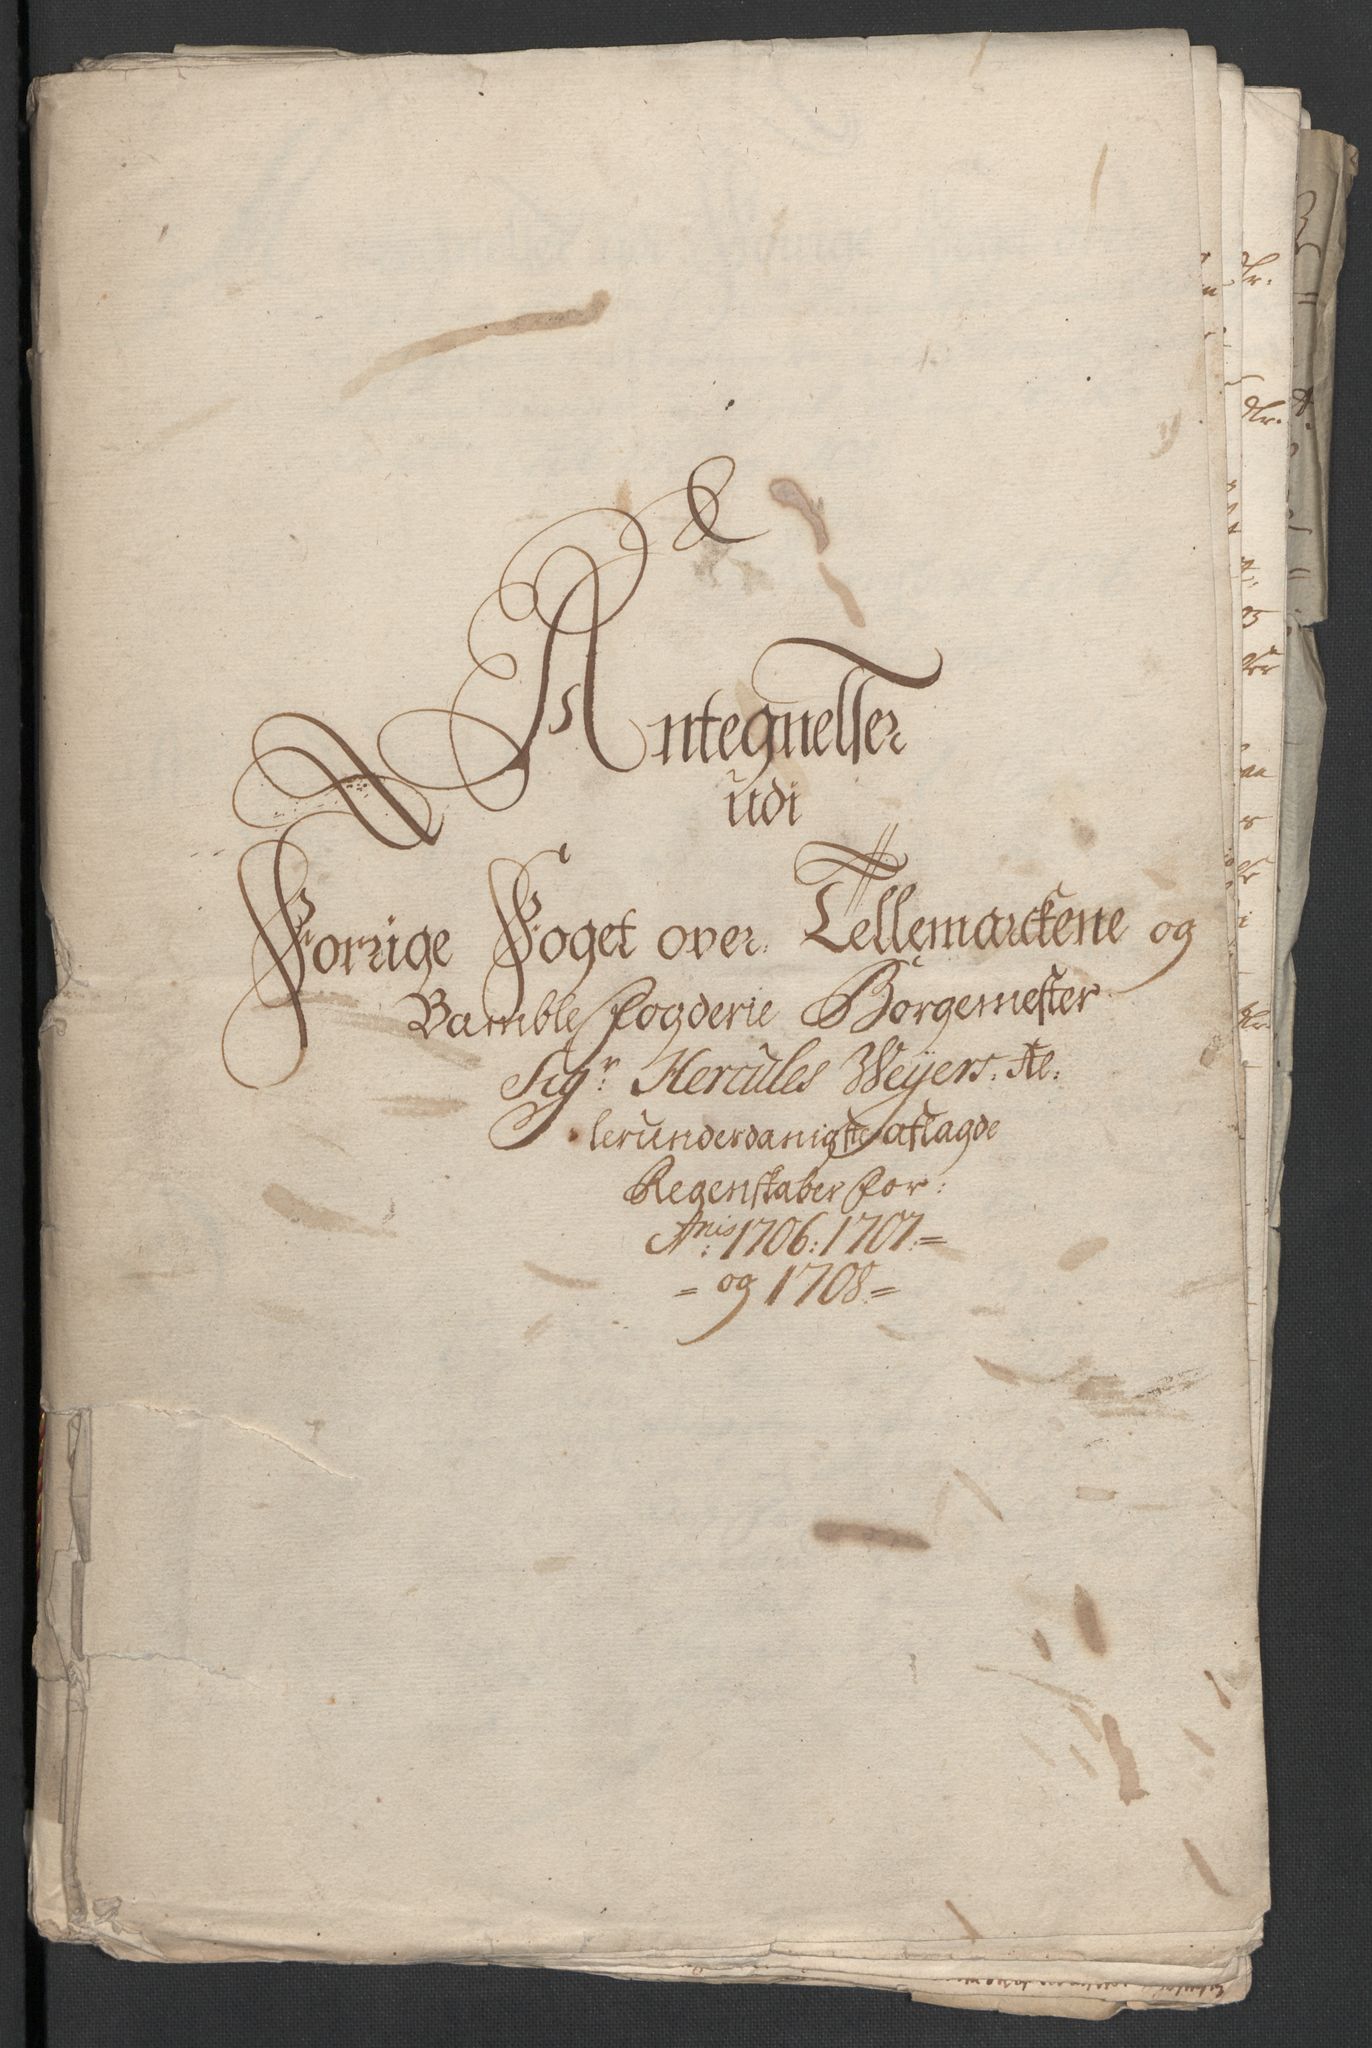 Antegnelser
udi
Forrige Foget over Tellemarckene og
Bamble fogderie Borgemester
Sigr: Hercules Weyers. Al:
lerunderdanigste aflagde
Regenskaber for:
Anis: 1706: 1707:=
= og 1708 =